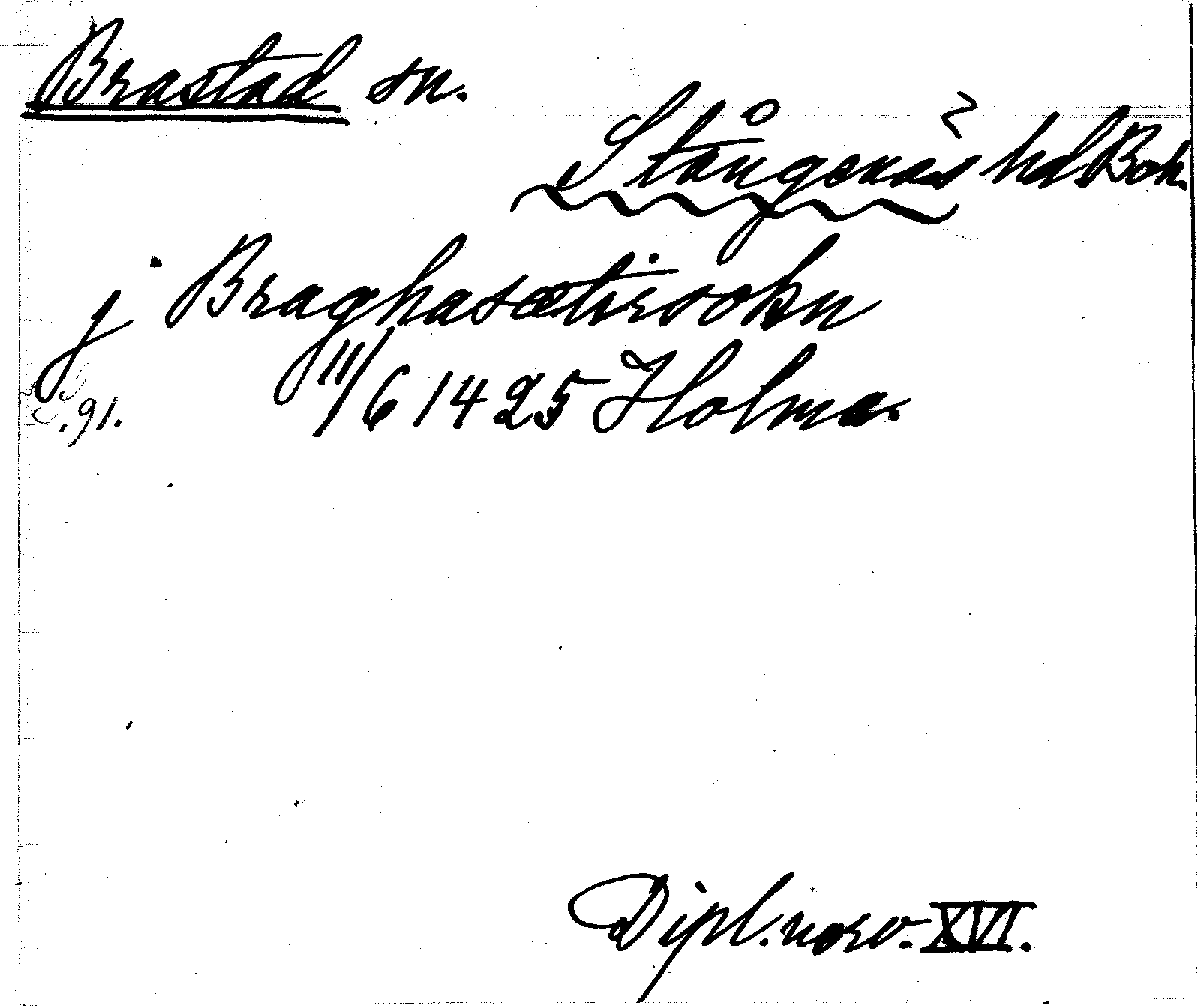 Brastad sn.
Stångenäs hd Boh.
j Braghasætirsokn
11/6 1425 Holma.
S. 91.
Dipl. norv. XVI.